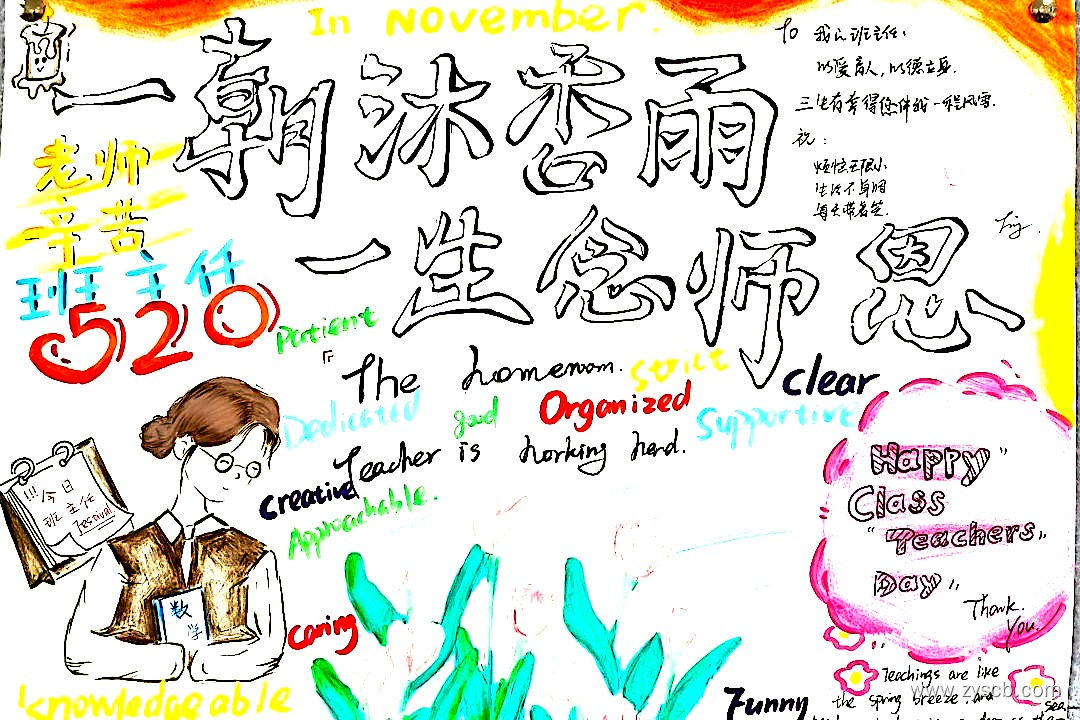 In November.
一朝沐杏雨
一生念师恩
To 我的班主任:
以爱育人,以德立身.
三生有幸得您伴我一程风雪.
祝:
烦恼无限小
生活不单调
每天带着笑.
老师
辛苦
班主任
520
Patient
The homeroom. strict clear
Dedicated good Organized Supportive
Teacher is working hard.
creative
Approachable.
Happy
Class
"Teachers"
Day"
Thank.
You.
!!!
今日
班主任
festival
数
学
caring
knowledgeable
Funny
Teachings are like
the spring breeze and
www.zyscb.com